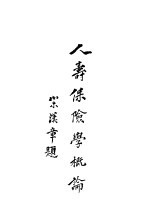 人壽保險學概論
宗漢章題